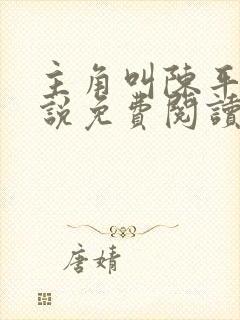 主角叫陳平
說免費閱讀
唐婧